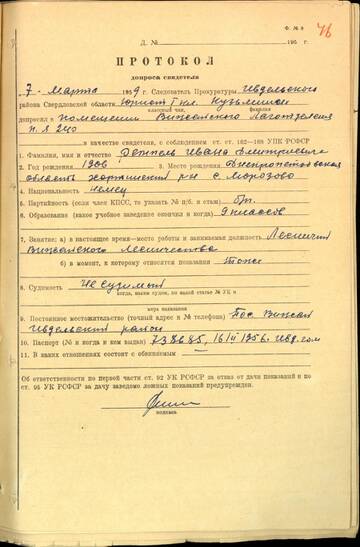 Ф. № 8
76
Д. №                195  г.
ПРОТОКОЛ
допроса свидетеля
7 - Марта 1959 г. Следователь Прокуратуры Ивдельского
района Свердловской области Юрист I кл. Кузьминых
классный чин, фамилия
допросил в помещении Вижайского Лаготделения
п.я 240
в качестве свидетеля, с соблюдением ст. ст. 162—168 УПК РСФСР
1. Фамилия, имя и отчество Ивана Дмитриевича
2. Год рождения 1906 3. Место рождения Днепропетровская
область р-н с. Морозово
4. Национальность немец
5. Партийность (если член КПСС, то указать № п/б. и стаж) бп.
6. Образование (какое учебное заведение окончил и когда) 9 классов
7. Занятие: а) в настоящее время—место работы и занимаемая должность Лесничий
Вижайского Лесничества
б) в момент, к которому относятся показания тоже
8. Судимость Не судимый
когда, каким судом, по какой статье № УК и
мера наказания
9. Постоянное местожительство (точный адрес и № телефона) Пос. Вижай
Ивдельский район
10. Паспорт (№ и когда и кем выдан) 738685, 16/II 1956г. Ивд.
11. В каких отношениях состоит с обвиняемым —
Об ответственности по первой части ст. 92 УК РСФСР за отказ от дачи показания и по
ст. 95 УК РСФСР за дачу заведомо ложных показаний предупрежден.
подпись